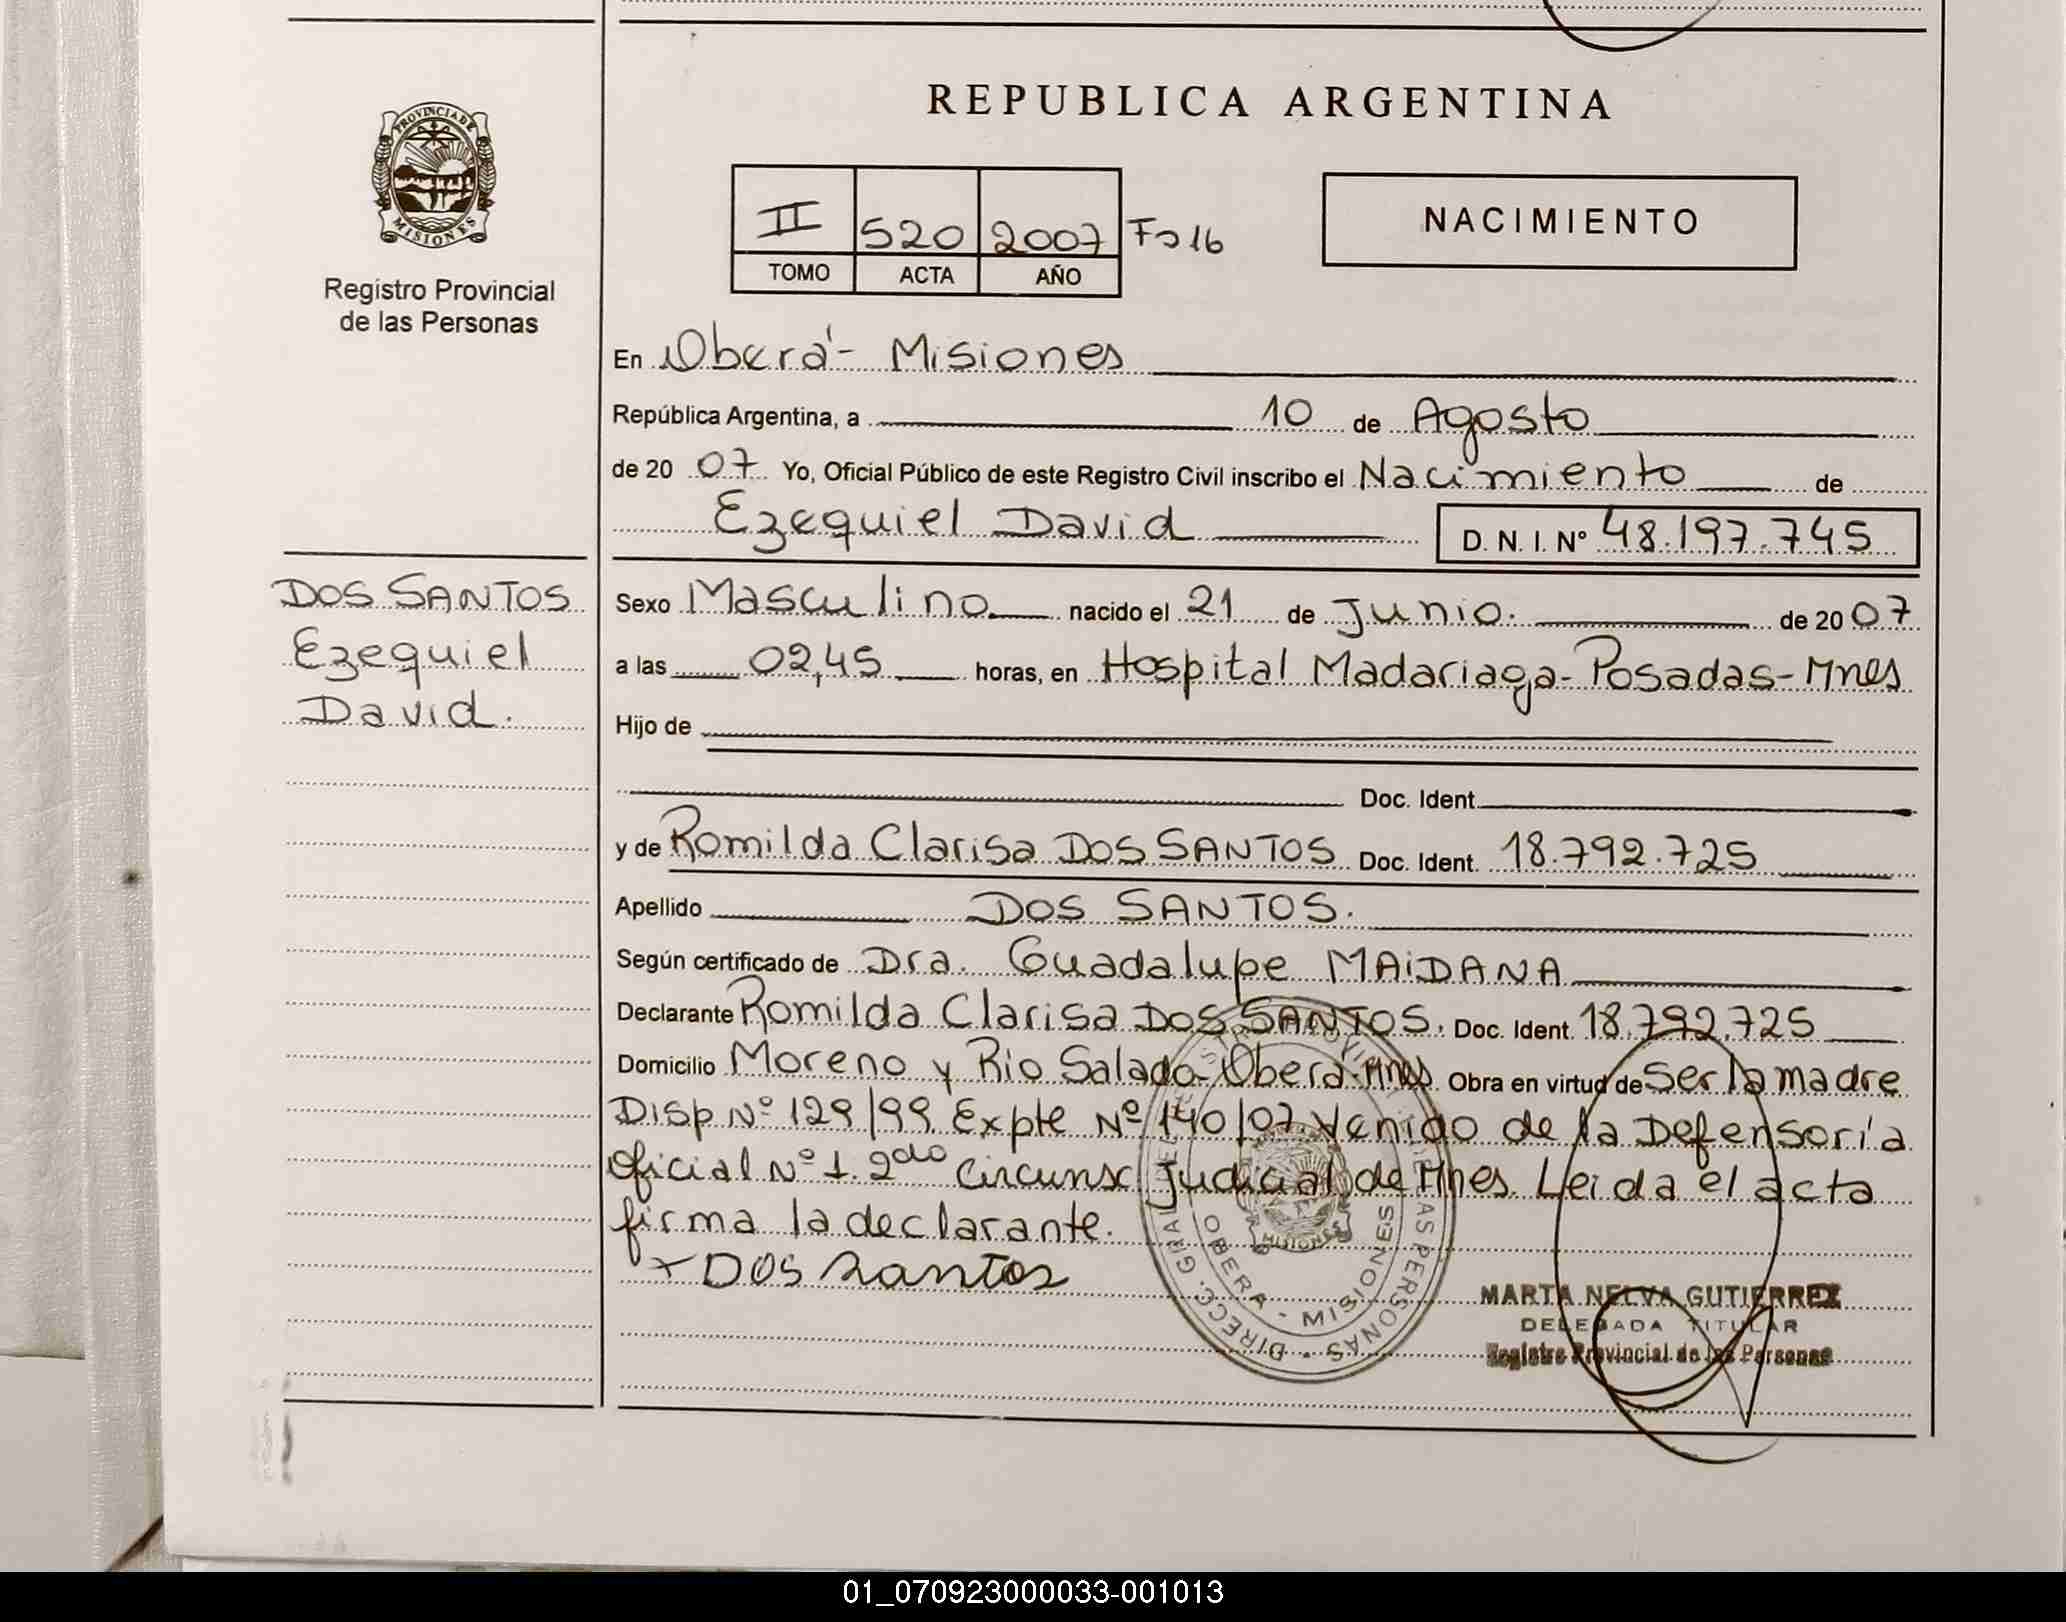 REPUBLICA ARGENTINA
PROVINCIA DE
MISIONES
Registro Provincial
de las Personas
II 520 2007 Fo 16
TOMO ACTA AÑO
NACIMIENTO
En Oberá - Misiones
República Argentina, a 10 de Agosto
de 20 07 Yo, Oficial Público de este Registro Civil inscribo el Nacimiento de
Ezequiel David D. N. I. Nº 48.197.745
DOS SANTOS
Ezequiel
David.
Sexo Masculino nacido el 21 de Junio. de 20 07
a las 02,45 horas, en Hospital Madariaga - Posadas - Mnes
Hijo de
Doc. Ident.
y de Romilda Clarisa DOS SANTOS Doc. Ident. 18.792.725
Apellido DOS SANTOS.
Según certificado de Dra. Guadalupe MAiDANA
Declarante Romilda Clarisa DOS SANTOS. Doc. Ident. 18.792.725
Domicilio Moreno y Rio Salado - Oberá - Mnes Obra en virtud de Ser la madre
Disp Nº 129/99 Expte Nº 140/07 Venido de la Defensoría
Oficial Nº 1. 2do Circunsc Judicial de Mnes Leida el acta
firma la declarante.
x DOS Santos
OBERA - MISIONES
MISIONES
MARTA NELVA GUTIERREZ
DELEGADA TITULAR
Registro Provincial de las Personas
01_070923000033-001013